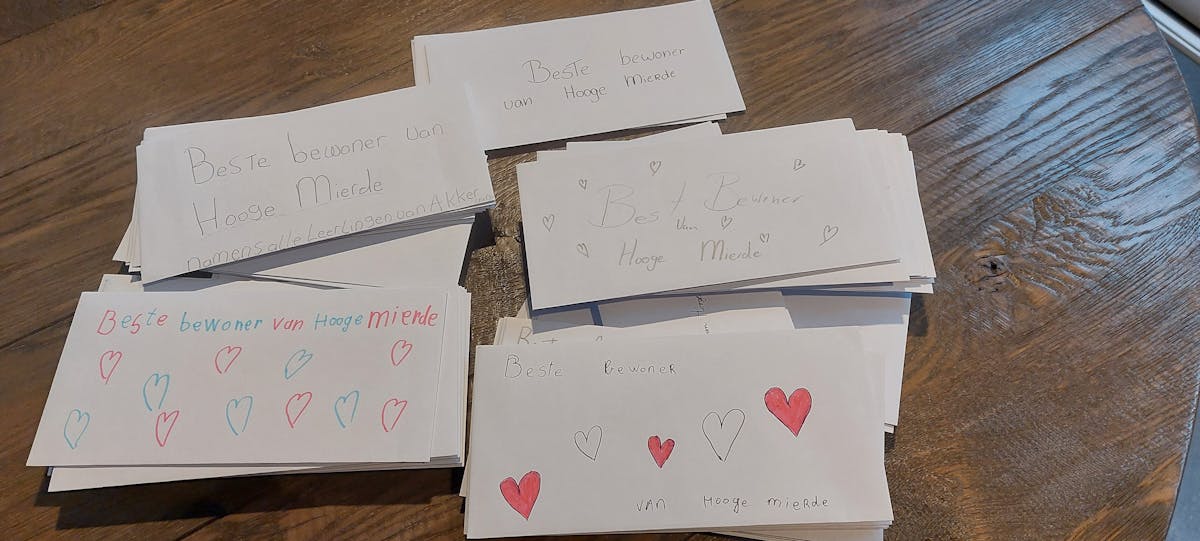 Beste bewoner
van Hooge Mierde
Beste bewoner van
Hooge Mierde
namens alle Leerlingen van Akker
Best Bewoner
van
Hooge Mierde
Beste bewoner van Hooge mierde
Beste Bewoner
van Hooge mierde